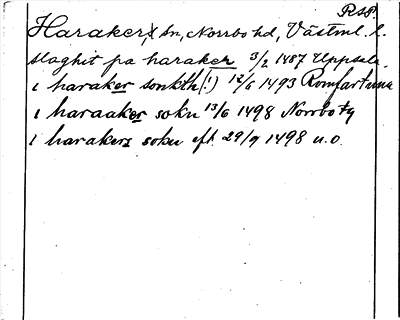 RSP.
Haraker, sn, Norrbo hd, Västml. l.
slaghit pa haraker 3/2 1487 Uppsala.
i haraker sonkth(!) 12/6 1493 Romfartuna
i haraaker sokn 13/6 1498 Norrbo tg
i harakers sokn eft. 29/9 1498 u.o.